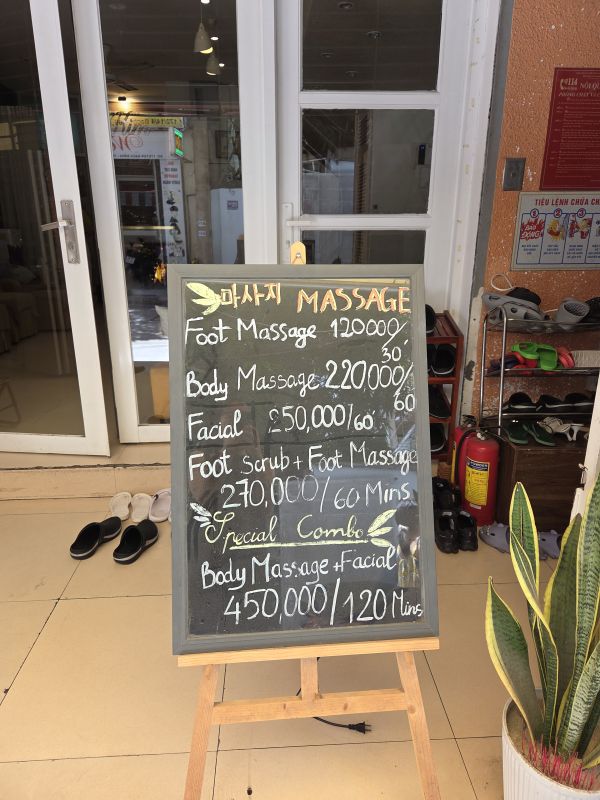 마사지 MASSAGE
Foot Massage 120000/
30'
Body Massage 220,000/
60
Facial 250,000/60'
Foot scrub + Foot Massage
270,000/60 Mins
Special Combo
Body Massage + Facial
450,000/120 Mins
114
NỘI QU
TIÊU LỆNH CHỮA CH
1 2 3
BÁO ĐỘNG